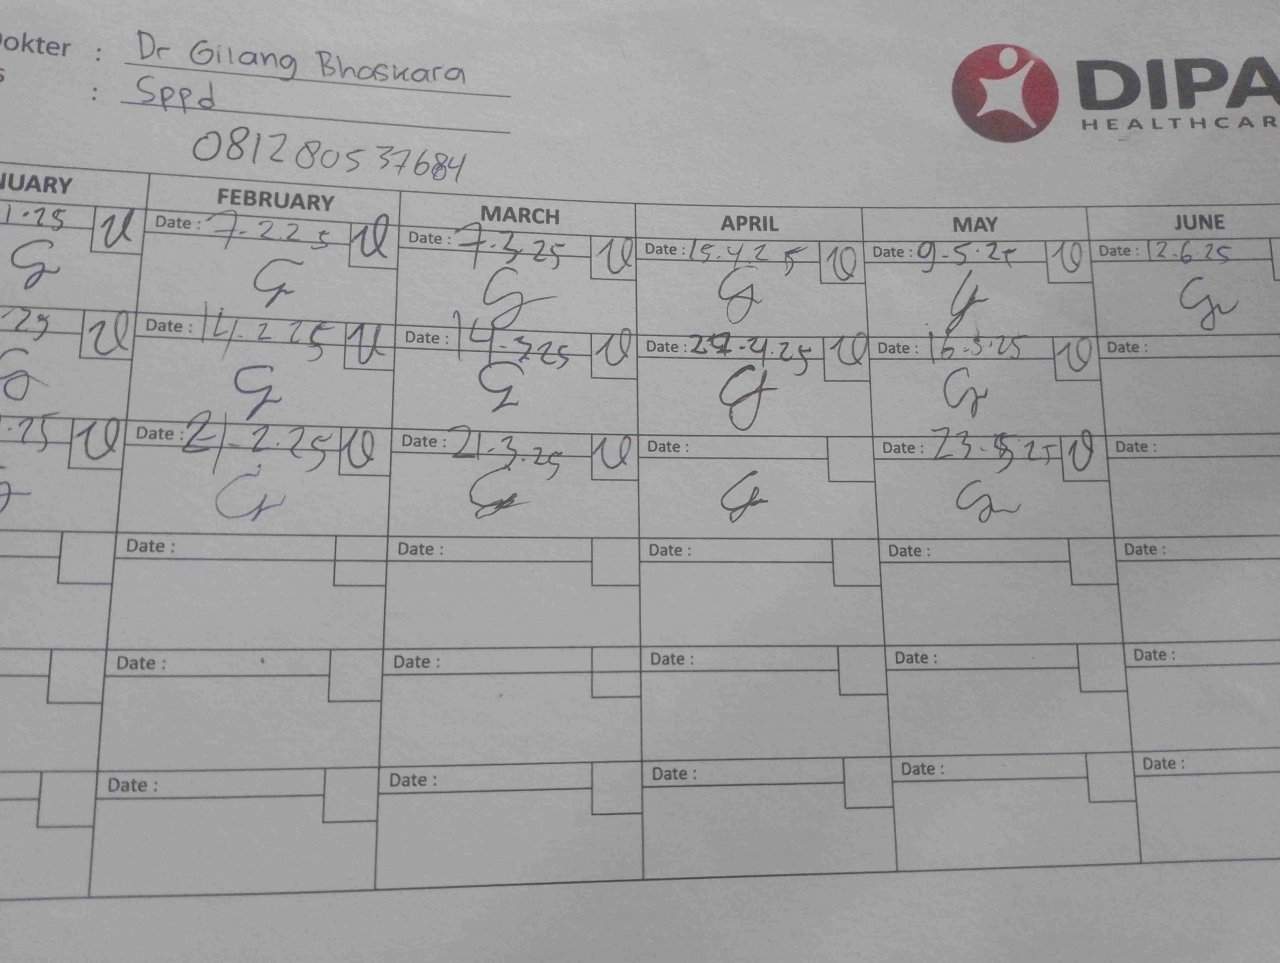 okter : Dr Gilang Bhaskara
s : Sppd
DIPA
HEALTHCAR
081280537684
NUARY FEBRUARY MARCH APRIL MAY JUNE
1.25 Date : 7.2 25 Date : 7.3.25 Date : 15.4.25 Date : 9.5.25 Date : 12.6.25
.25 Date : 14.2 25 Date : 14.3.25 Date : 4.25 Date : 16.5.25 Date :
.25 Date : 21.2.25 Date : 21.3.25 Date : Date : 23.5 25 Date :
Date : Date : Date : Date : Date :
Date : Date : Date : Date : Date :
Date : Date : Date : Date : Date :